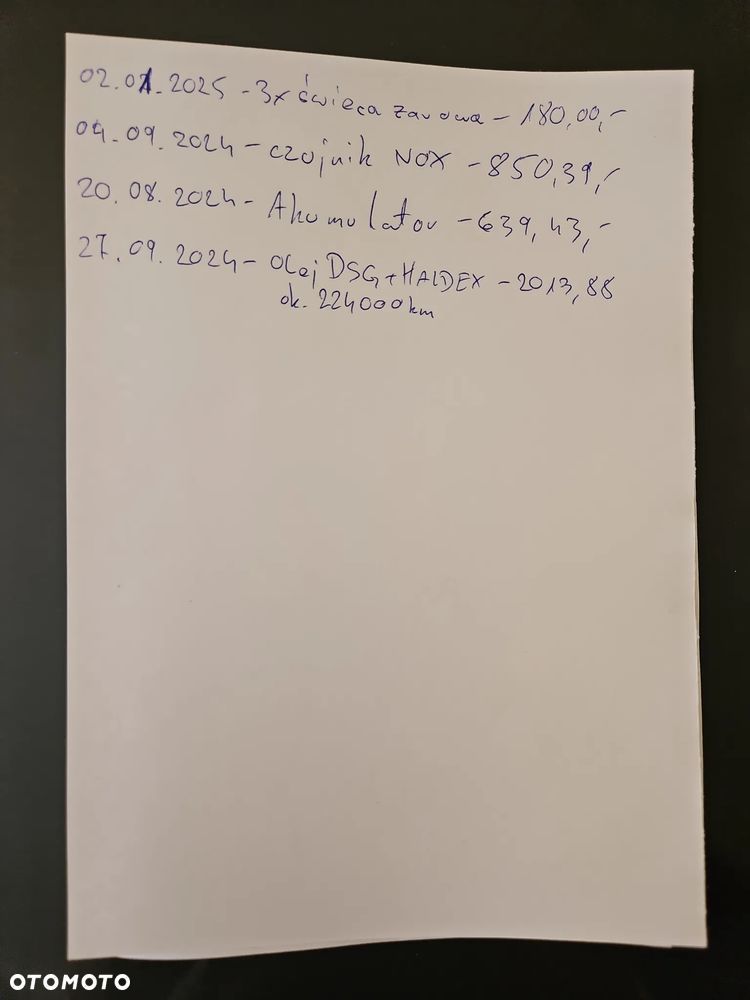 02.01.2025 - 3x świeca żarowa - 180,00,-
04.09.2024 - czojnik NOX - 850,39,-
20.08.2024 - Akumulator - 639,43,-
27.09.2024 - Olej DSG + HALDEX - 2013,88
ok. 224000km
OTOMOTO